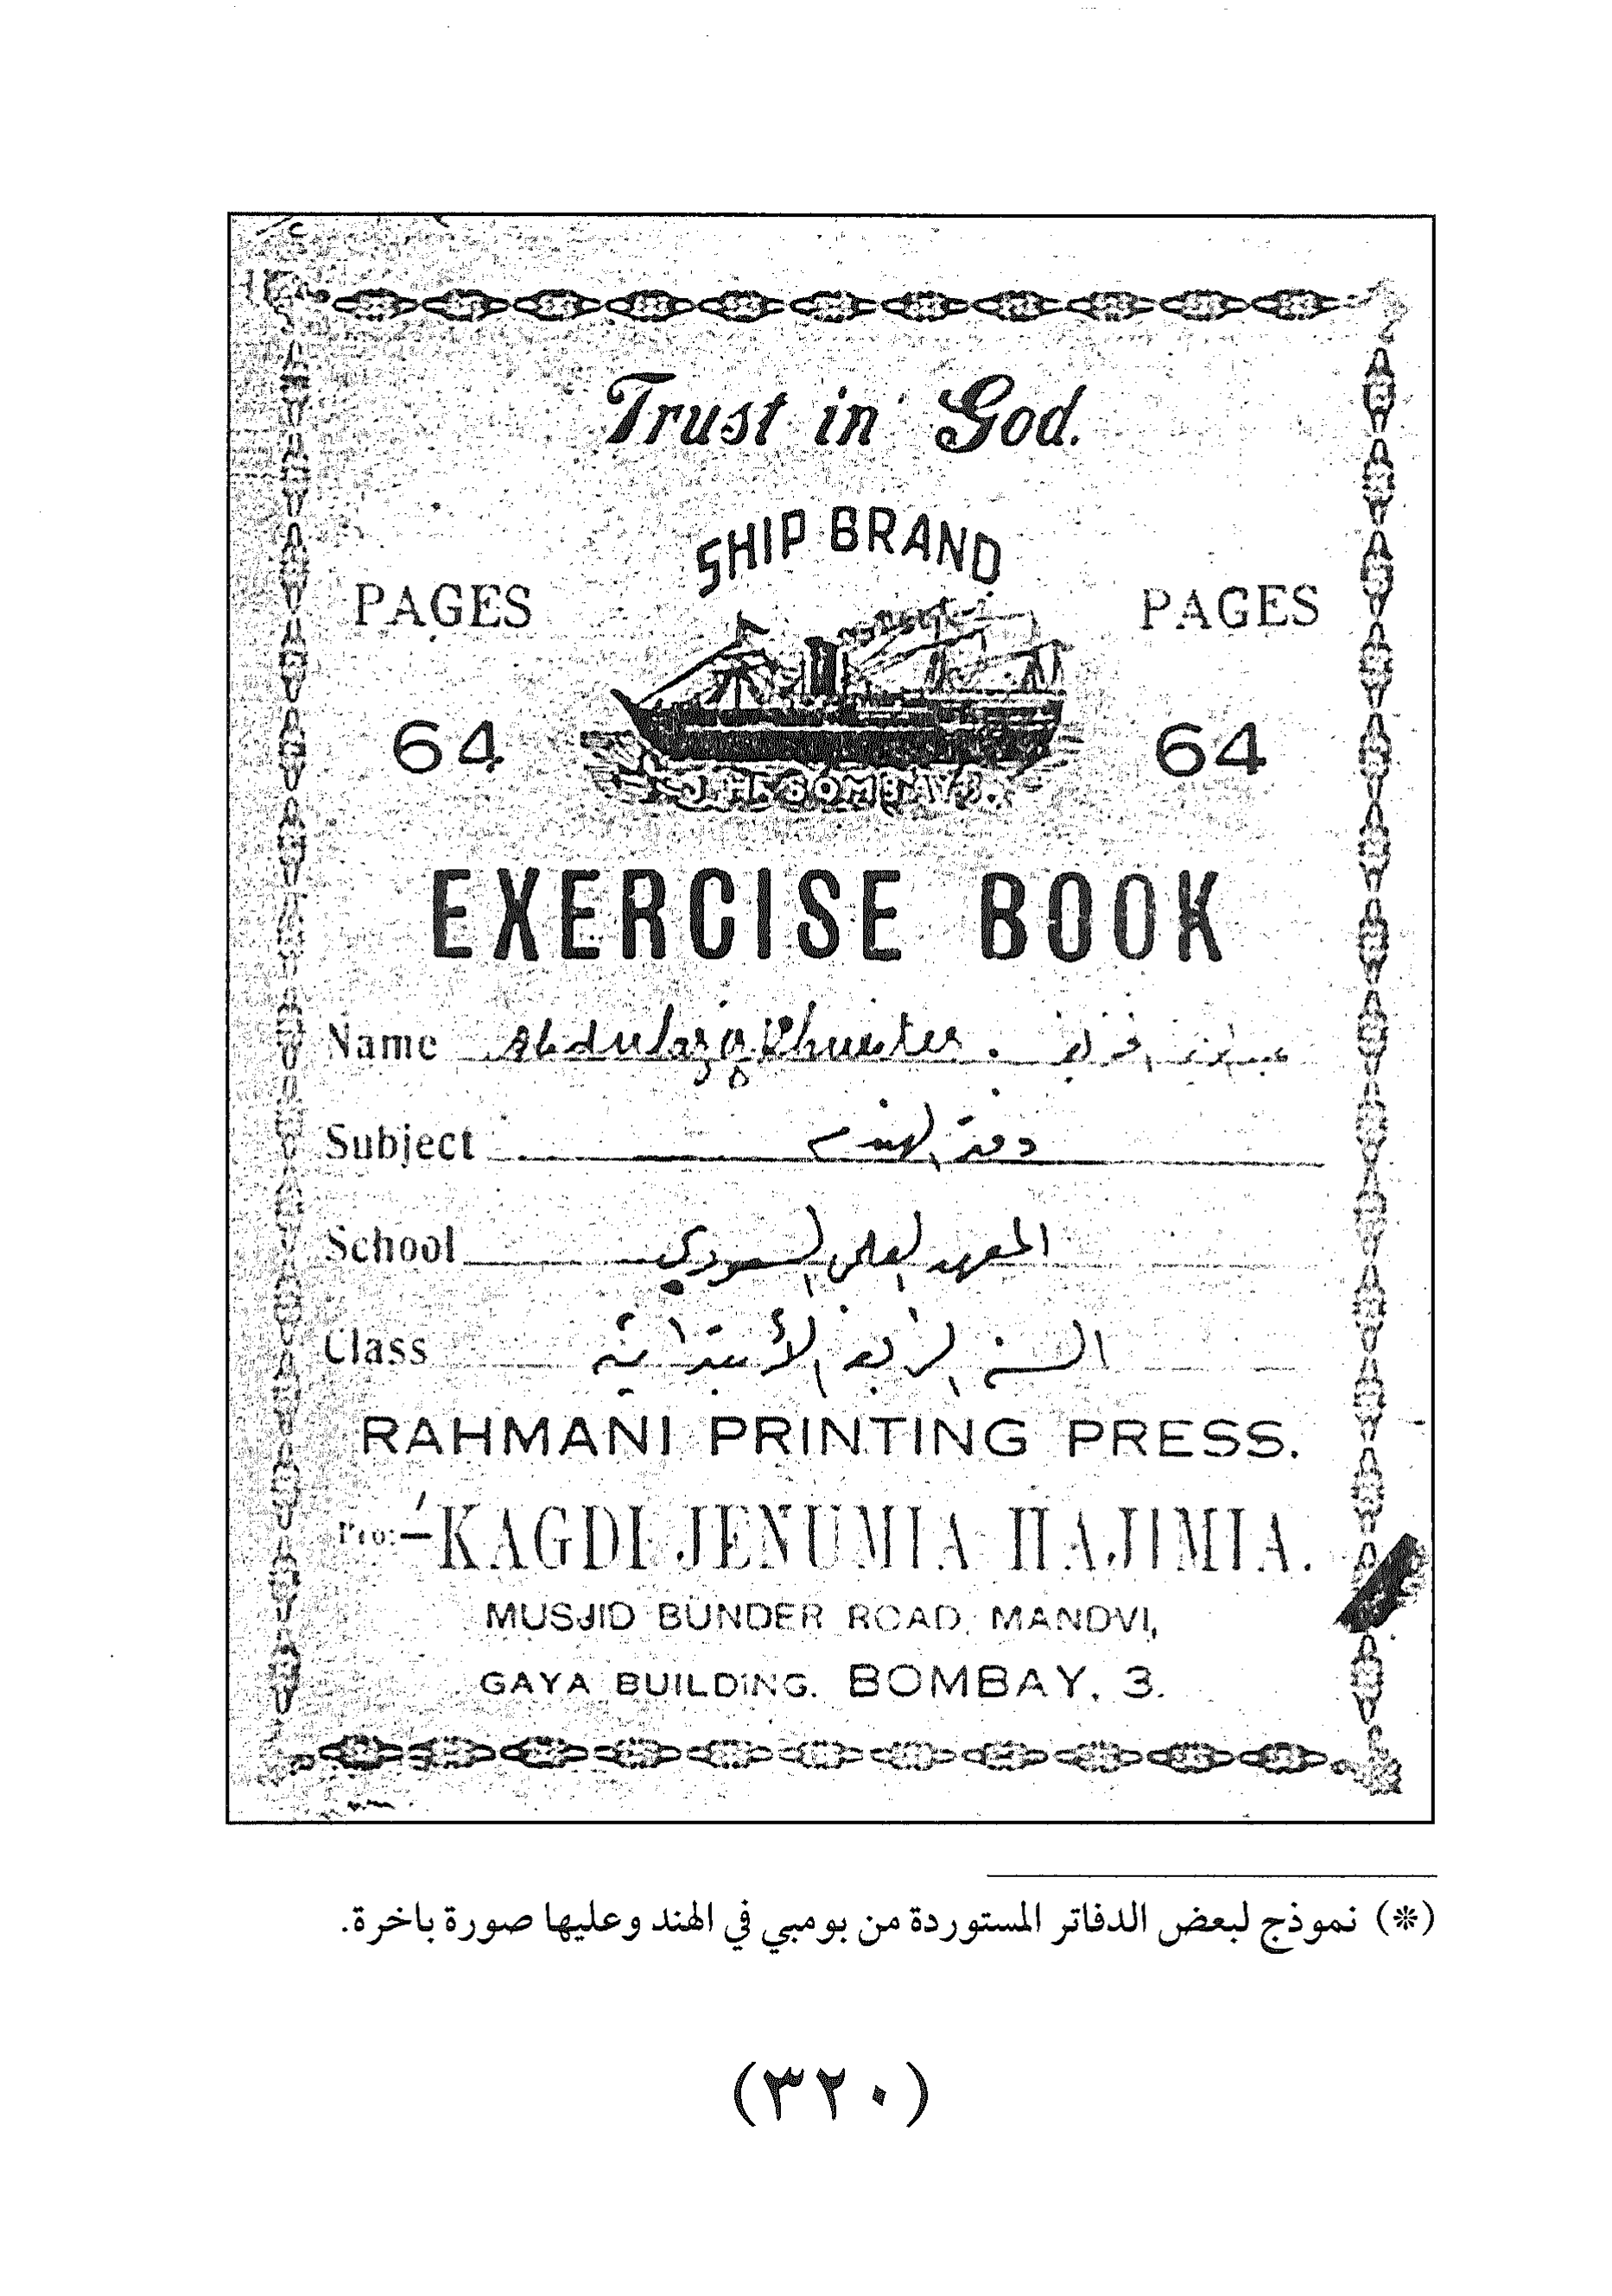 Trust in God.
SHIP BRAND
PAGES PAGES
64 64
BOMBAY
EXERCISE BOOK
Name
Subject دفتر الهندسة
School المعهد العلمي السعودي
Class السنة الرابعة الأبتدائية
RAHMANI PRINTING PRESS.
Pro:- KAGDI JENUMIA HAJIMIA.
MUSJID BUNDER ROAD, MANDVI,
GAYA BUILDING. BOMBAY, 3.
(*) نموذج لبعض الدفاتر المستوردة من بومبي في الهند وعليها صورة باخرة.
(٣٢٠)